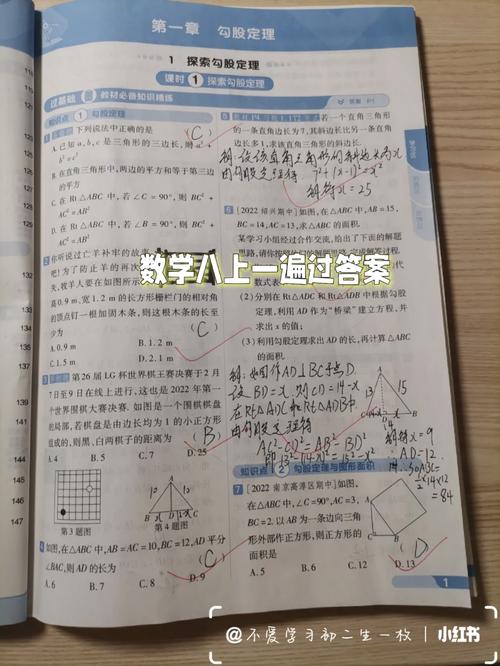 第一章 勾股定理
1 探索勾股定理
课时 1 探索勾股定理
过基础 教材必备知识精练
答案 P1
知识点 1 勾股定理
下列说法中正确的是 (C)
A.已知a,b,c是三角形的三边长,则a²+
b²=c²
B.在直角三角形中,两边的平方和等于第三边
的平方
C.在Rt△ABC中,若∠C=90°,则BC²+
AC²=AB²
D.在Rt△ABC中,若∠B=90°,则BC²+
AC²=AB²
2 你听说过亡羊补牢的故事
吧?为了防止羊的再次
失,牧羊人要在如图所示
高0.9 m,宽1.2 m的长方形栅栏门的相对角
的顶点钉一根加固木条,则这根木条的长至
少为 (C)
A.0.9 m B.1.2 m
C.1.5 m D.2.1 m
3 第26届LG杯世界棋王赛决赛于2月
7日至9日在线上进行,这也是2022年第一
个世界围棋大赛决赛.如图是一个围棋棋盘
的局部,若棋盘是由边长均为1的小正方形
组成的,则黑、白两棋子的距离为 (B)
A.4 B.5 C.7 D.25
A
10 10
B D C
第3题图 第4题图
4 如图,在△ABC中,AB=AC=10,BC=12,AD平分
∠BAC,则AD的长为 (C)
A.6 B.7 C.8 D.9
5 若一个直角三角形
的一条直角边长为7,其斜边长比另一条直
角边长多1,求该直角三角形的斜边长.
解:设该直角三角形的斜边长为x
由勾股定理得 7²+(x-1)²=x²
解得x=25
6 [2022绍兴期中]如图,在△ABC中,AB=15,
BC=14,AC=13,求△ABC的面积.
某学习小组经过合作交流,给出了下面的解题
思路,请你按照
数学八上一遍过答案
代数式表示
(2)分别在Rt△ADC和Rt△ADB中根据勾股
定理,利用AD作为“桥梁”建立方程,并
求出x的值;
(3)利用勾股定理求出AD的长,再计算△ABC
的面积.
解:如图作AD⊥BC于点D
设BD=x,则CD=14-x
在Rt△ADC和Rt△ADB中
由勾股定理得
AC²-CD²=AB²-BD²
即13²-(14-x)²=15²-x²
A
13 15
14
解得x=9
∴AD=12
∴S△ABC=
½×14×12
=84
知识点 2 勾股定理与图形面积
7 [2022南京高淳区期中]如图,
在△ABC中,∠C=90°,AC=3,
BC=2.以AB为一条边向三角
形外部作正方形,则正方形的
面积是 (D)
A.5 B.6 C.12 D.13
1
@不爱学习初二生一枚 | 小红书